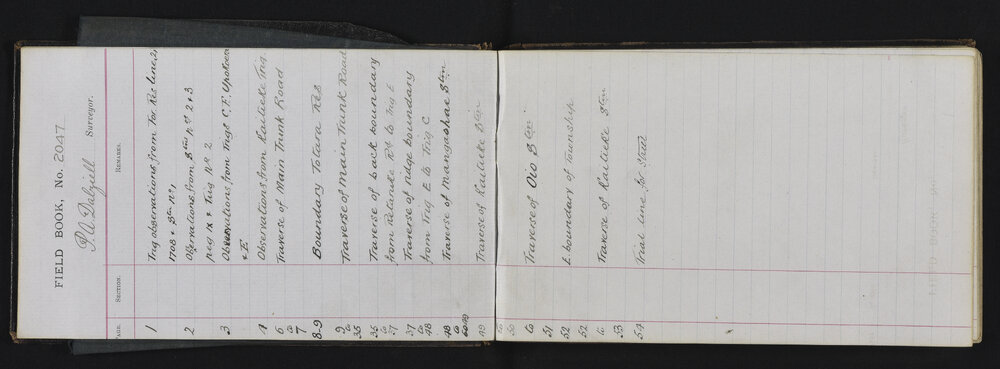 FIELD BOOK, No. 2047
P. A. Dalziell Surveyor.
PAGE. SECTION. REMARKS.
1 Trig observations from For. Res line
1708 & Stn No 1
2 Observations from Stns No 2 & 3
peg IX & Trig No 2
3 Observations from Trigs C. F.
& E
4 Observations from Kaitieke Trig
6 to 7 Traverse of Main Trunk Road
8-9 Boundary Totara Res
9 to 35 Traverse of Main Trunk Road
36 to 37 Traverse of back boundary
from Retaruke Rd to Trig E
37 to 48 Traverse of ridge boundary
from Trig E to Trig C
48 to Traverse of Mangaohae Stm
49 to 50 Traverse of Kaitieke Stm
to 51 Traverse of Oio Stm
52 E. boundary of Township
52 to 53 Traverse of Kaitieke Stm
54 Trial line for Street